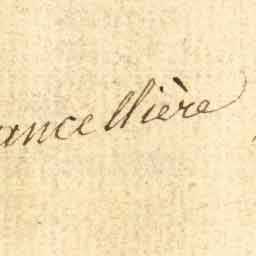 ancellière